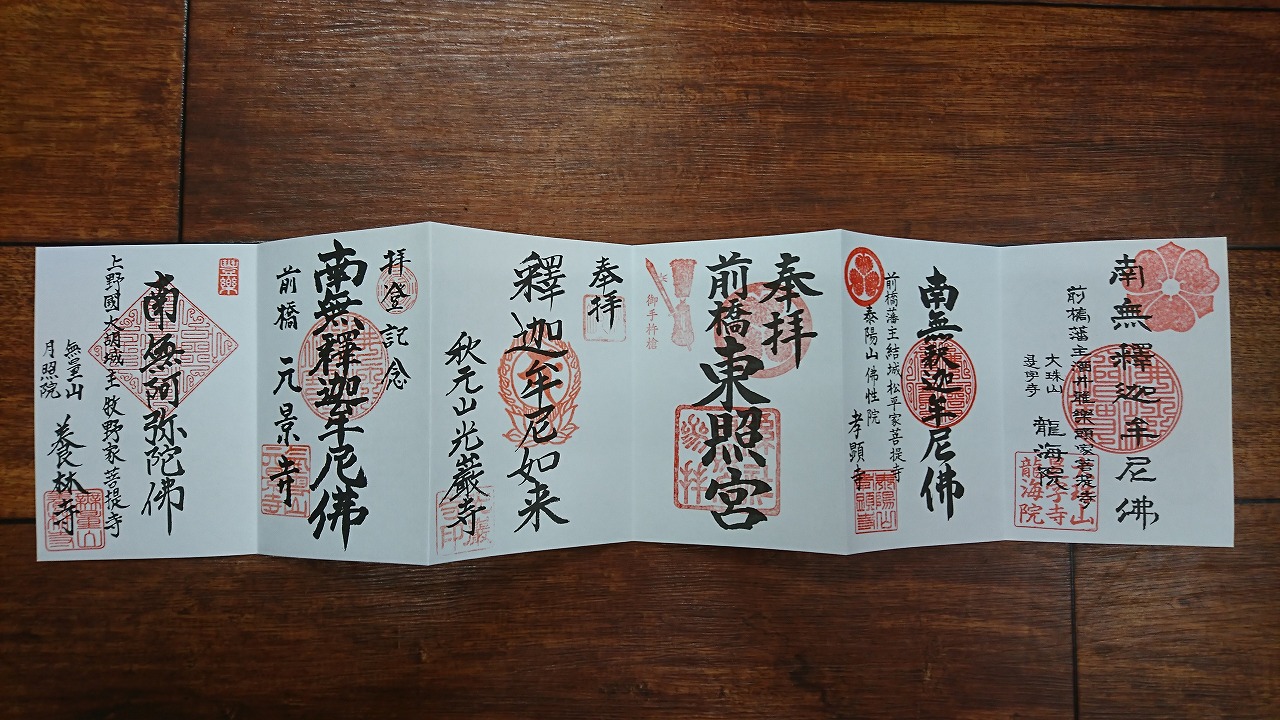 南無釋迦牟尼佛
前橋藩主酒井雅樂頭家菩提寺
大珠山
是字寺
龍海院
南無釈迦牟尼佛
前橋藩主結城松平家菩提寺
泰陽山佛性院
孝顕寺
奉拝
前橋東照宮
御手杵槍
奉拝
釋迦牟尼如来
秋元山光巖寺
拝登記念
南無釋迦牟尼佛
前橋元景寺
豐樂
南無阿弥陀佛
上野國大胡城主牧野家菩提寺
無量山
月照院
養林寺